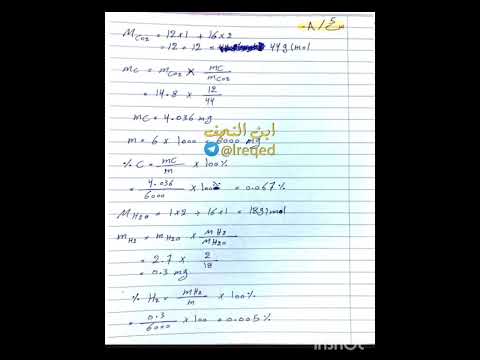 س٤/ ٨-
M CO2 = 12x1 + 16x2
= 12 + 12 = 44 g/mol
mc = mCO2 x mC/mCO2
= 14.8 x 12/44
mC = 4.036 mg
m = 6 x 1000 = 6000 mg
% C = mC/m x 100%
= 4.036/6000 x 100% = 0.067%
M H2O = 1x2 + 16x1 = 18g/mol
m H2 = m H2O x M H2/M H2O
= 2.7 x 2/18
= 0.3 mg
% H2 = mH2/m x 100%
= 0.3/6000 x 100 = 0.005%
ابن النجف
@Ireqed
InShOT